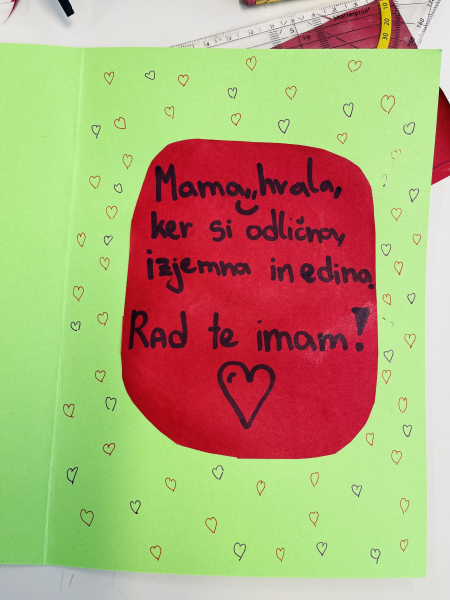 Mama, hvala,
ker si odlična,
izjemna in edina.
Rad te imam!